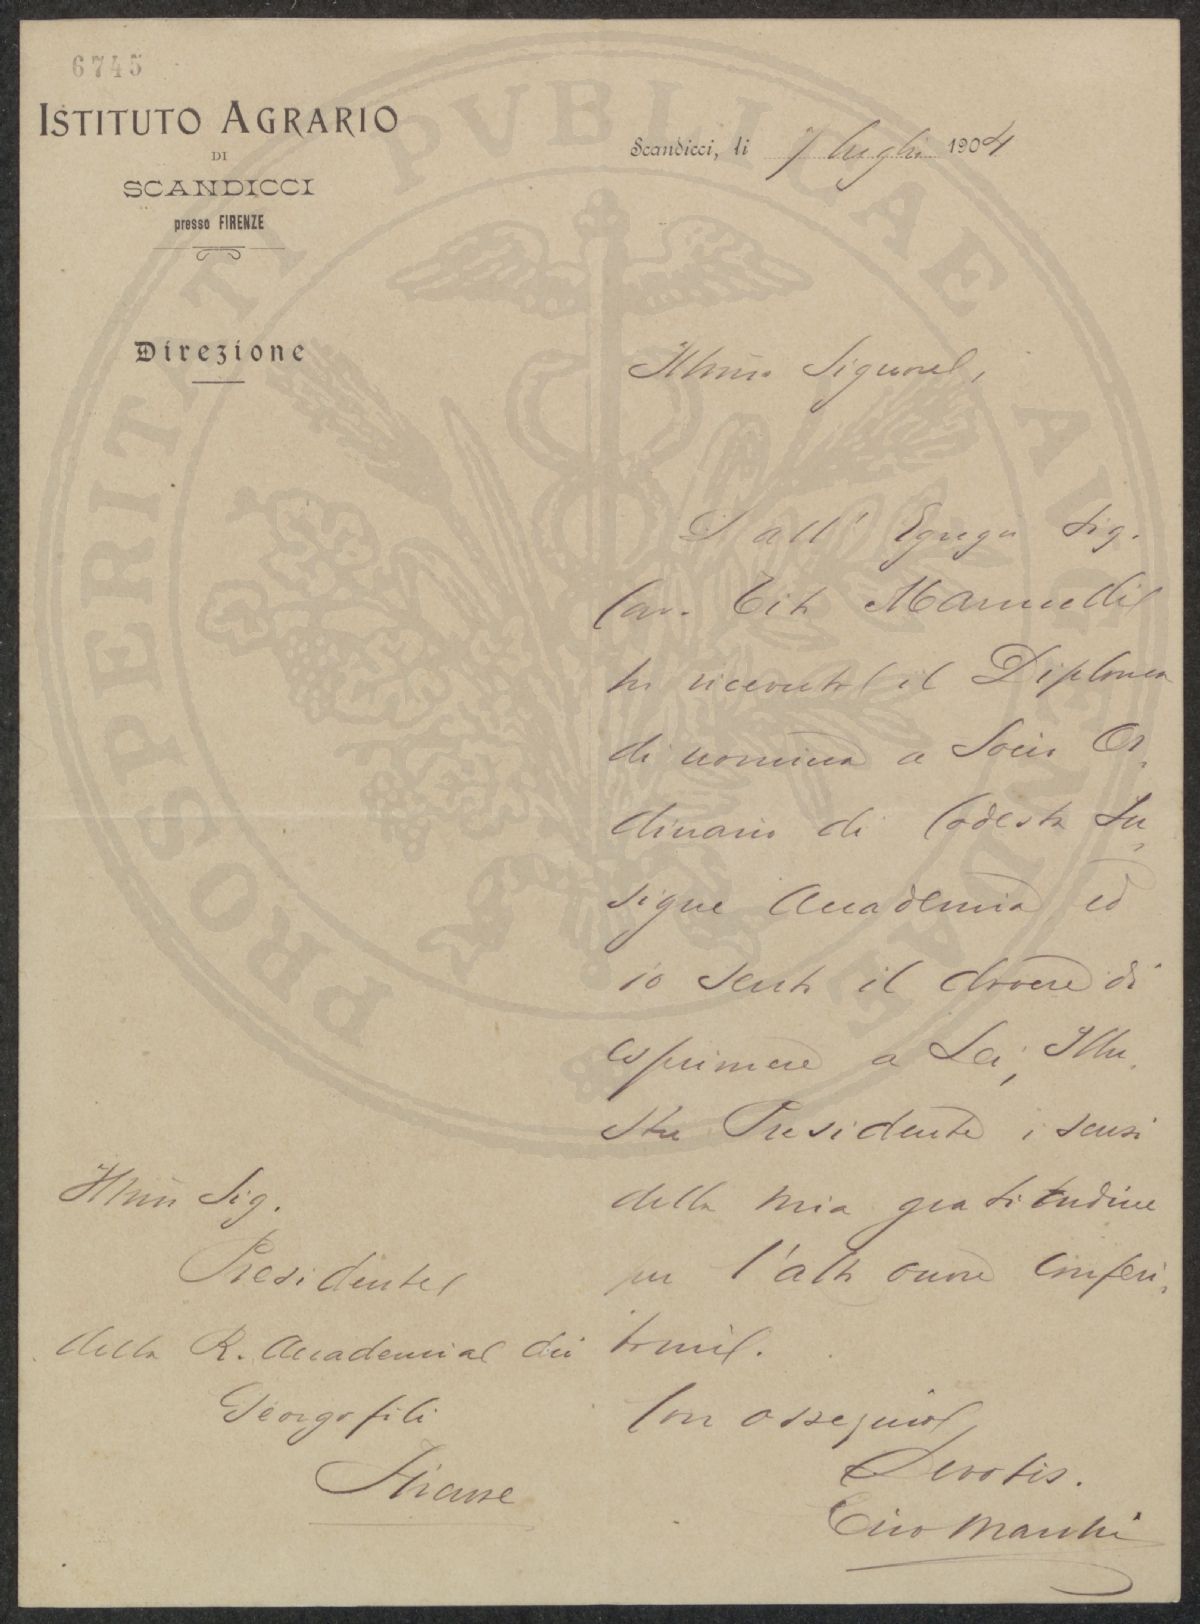 6745
ISTITUTO AGRARIO
DI
SCANDICCI
presso FIRENZE
Direzione
Scandicci, li 7 luglio 1904
Illmo Signore,
Dall' Egregio Sig.
Cav. Tito Marucelli
ho ricevuto il Diploma
di nomina a Socio Or-
dinario di Codesta In-
signe Accademia ed
io sento il dovere di
esprimere a Lei, Illu-
stre Presidente i sensi
della mia gratitudine
per l'alto onore conferi-
tomi.
Con ossequio
Devotis.
Ciro Marchi
Illmo Sig.
Presidente
della R. Accademia dei
Georgofili
Firenze
PROSPERITATI PVBLICAE AVGENDAE